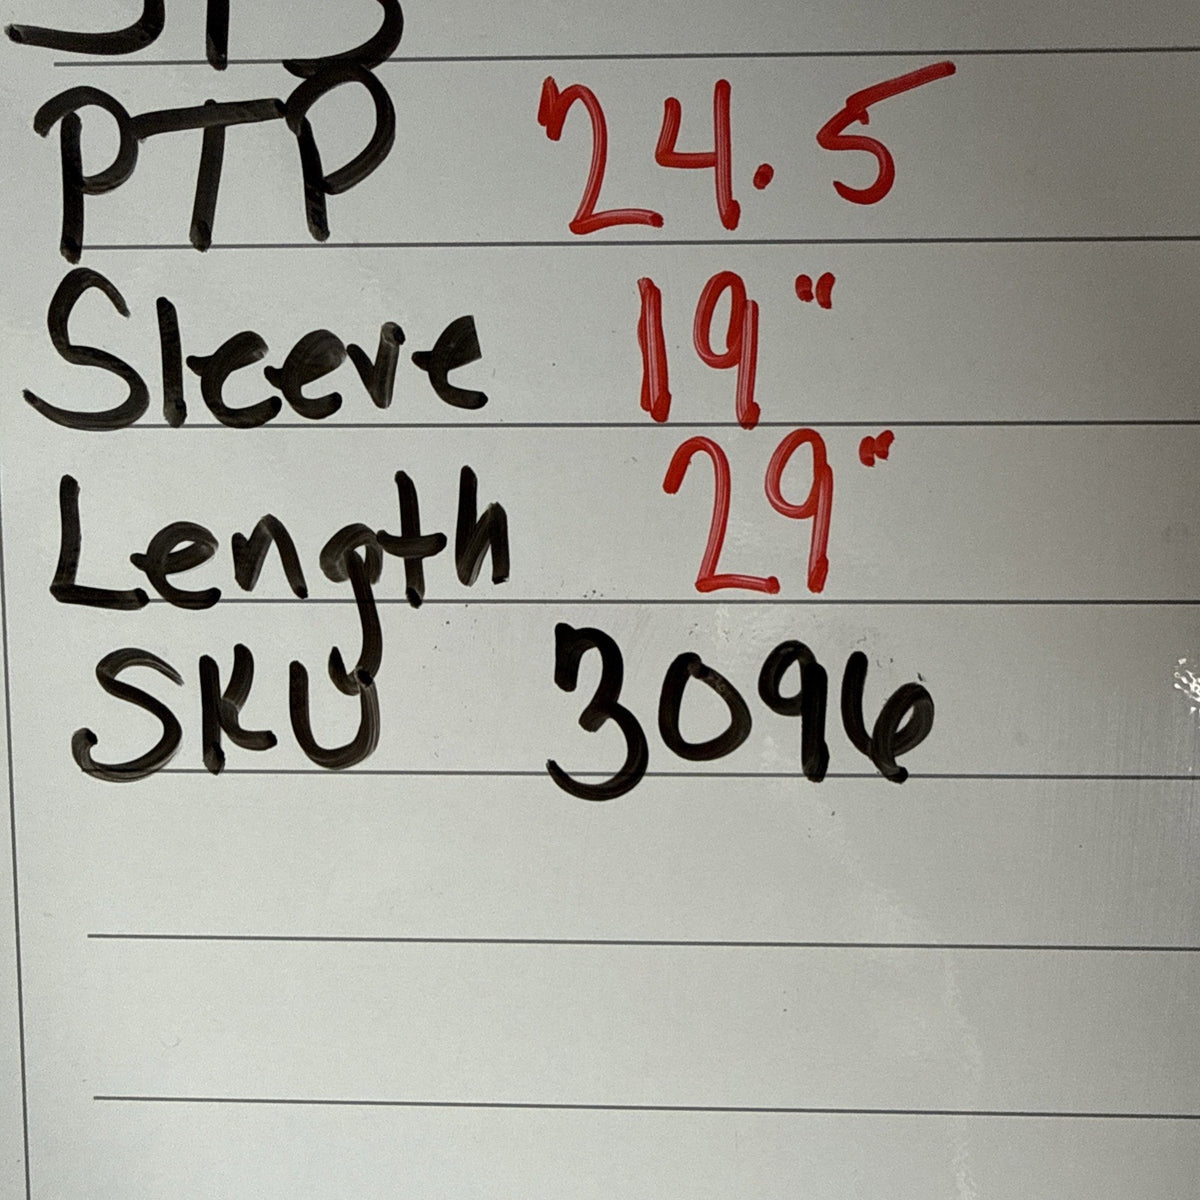 PTP 24.5
Sleeve 19"
Length 29"
SKU 3096